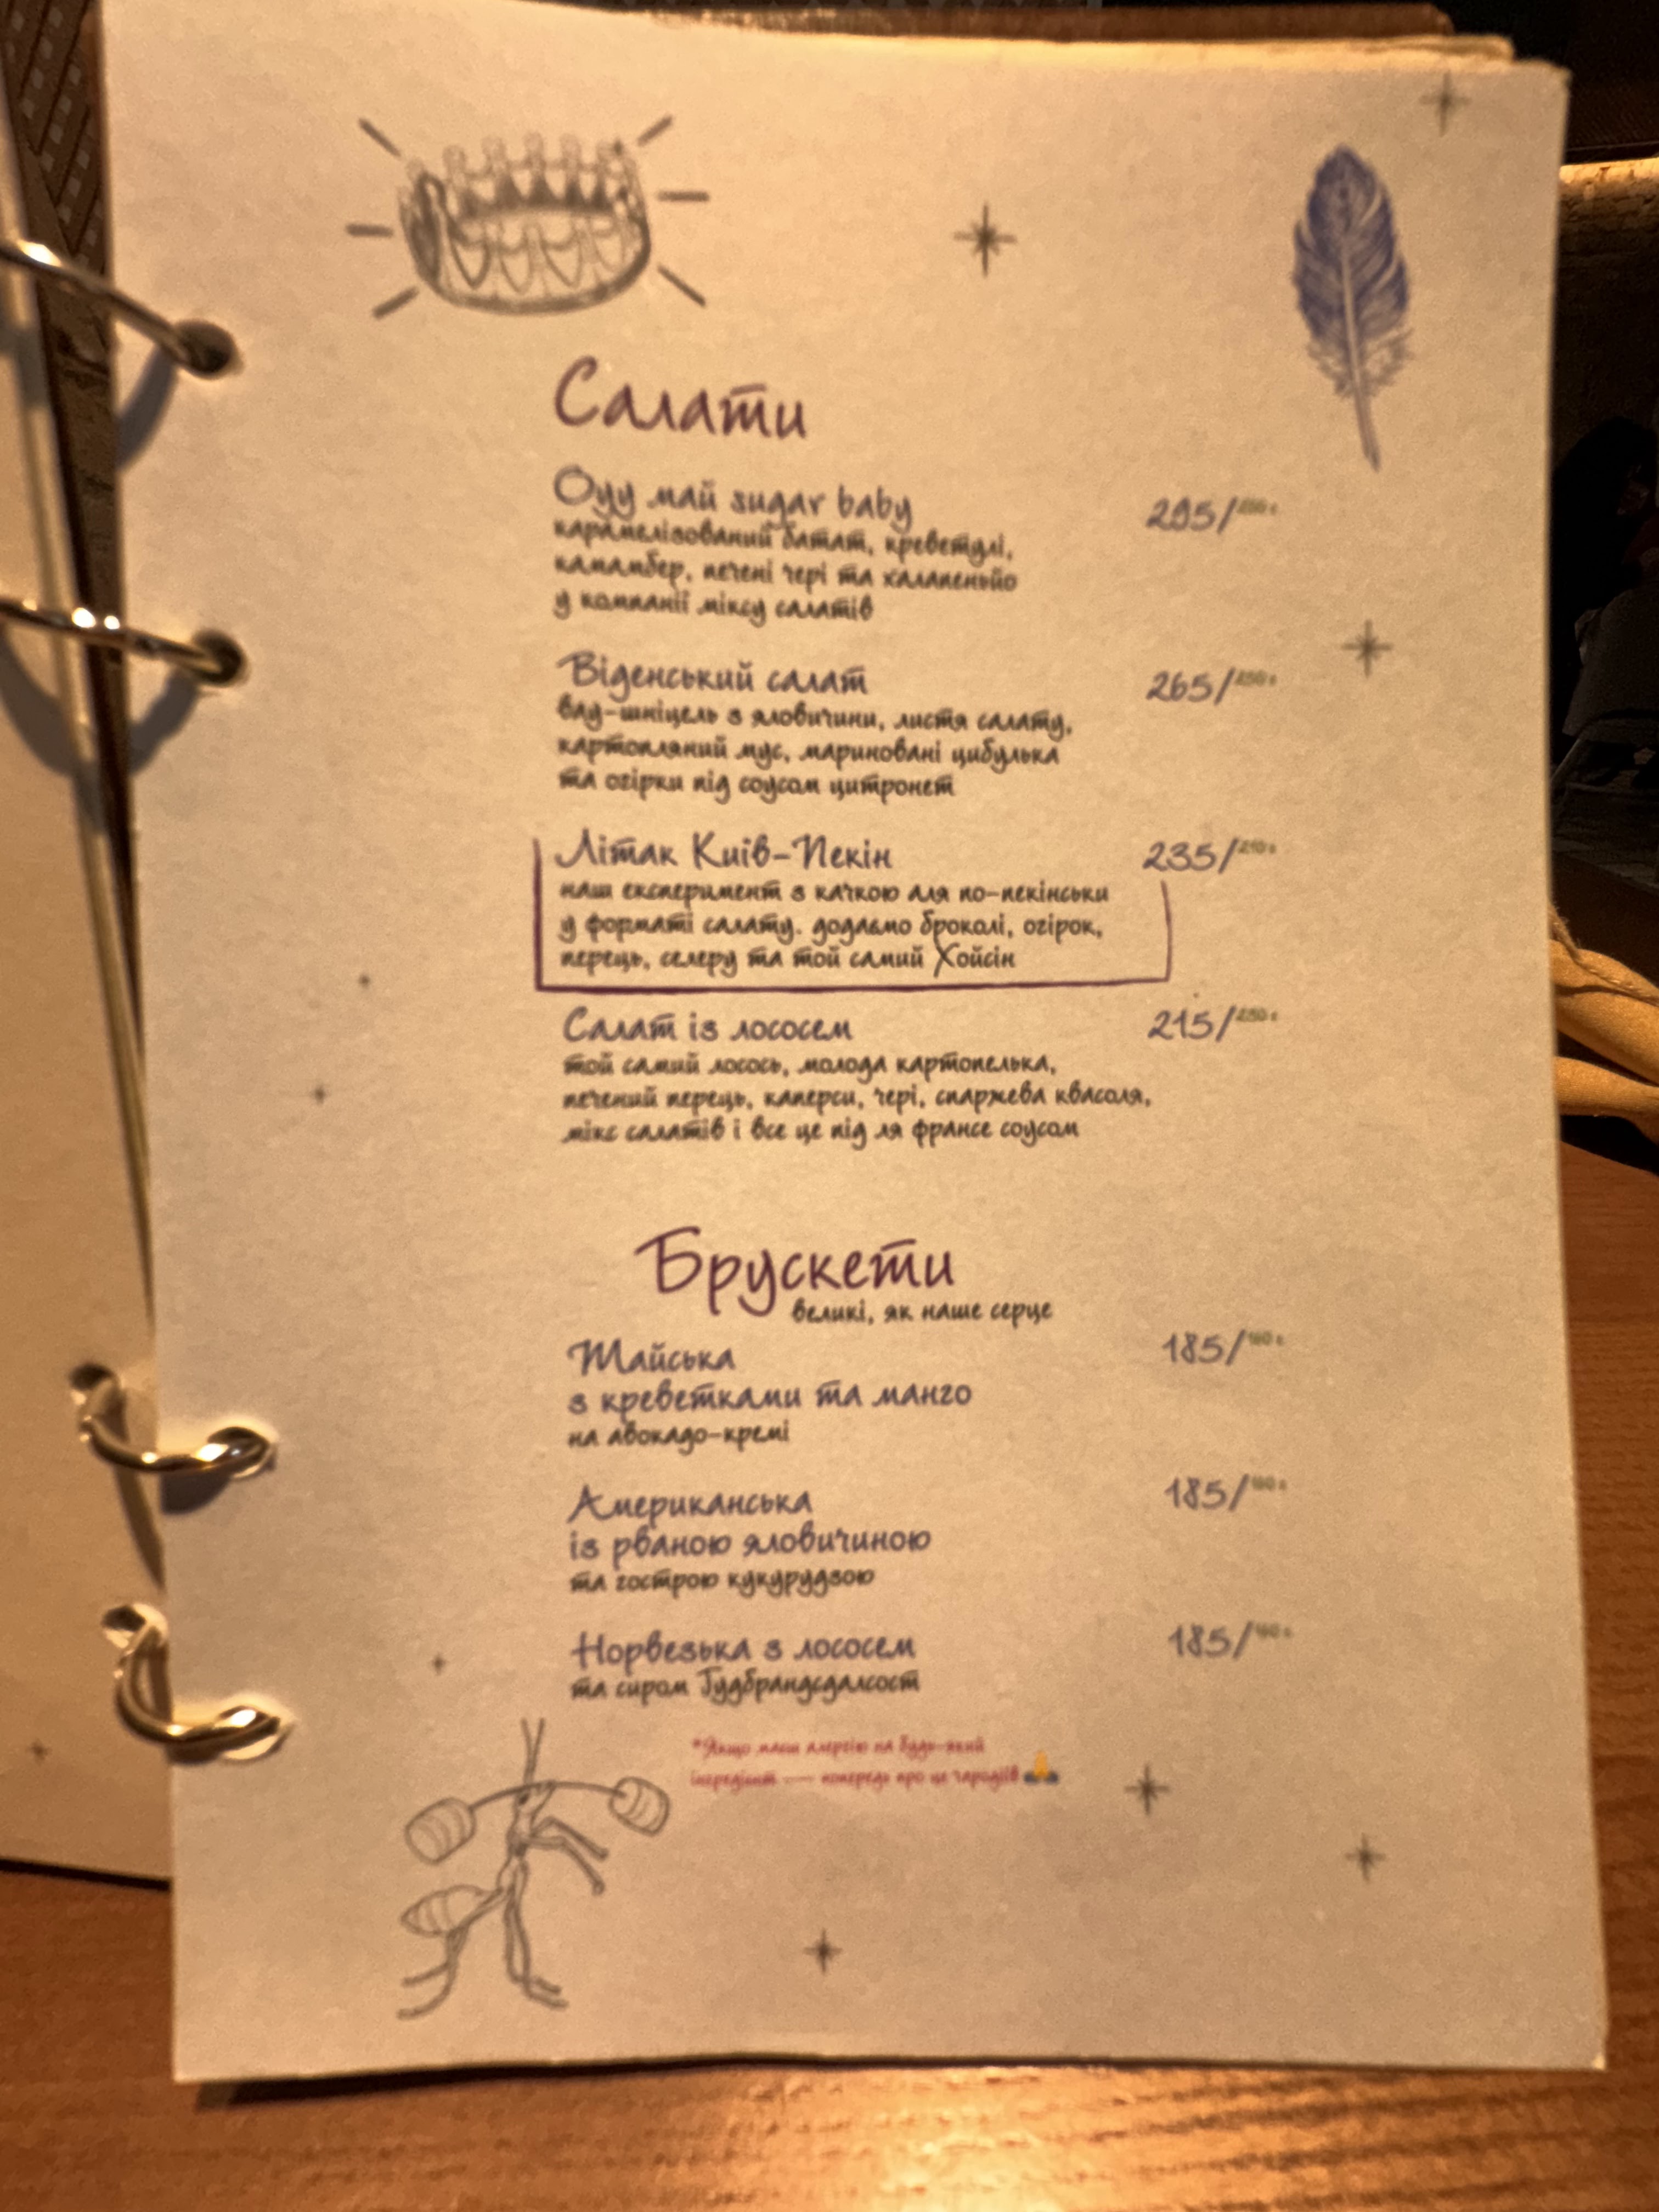 Салати
Оуу май sugar baby 295/
карамелізований батат, креветулі,
камамбер, печені чері та халапеньйо
у компанії міксу салатів
Віденський салат 265/
вау-шніцель з яловичини, листя салату,
картопляний мус, мариновані цибулька
та огірки під соусом цитронет
Літак Київ-Пекін 235/
наш експеримент з качкою аля по-пекінськи
у форматі салату. додаємо броколі, огірок,
перець, селеру та той самий Хойсін
Салат із лососем 215/
той самий лосось, молода картопелька,
печений перець, каперси, чері, спаржева квасоля,
мікс салатів і все це під ля франсе соусом
Брускети
великі, як наше серце
Тайська 185/
з креветками та манго
на авокадо-кремі
Американська 185/
із рваною яловичиною
та гострою кукурудзою
Норвезька з лососем 185/
та сиром Гудбрандсдалсост
*Якщо маєш алергію на будь-який
інгредієнт — попередь про це чародіїв